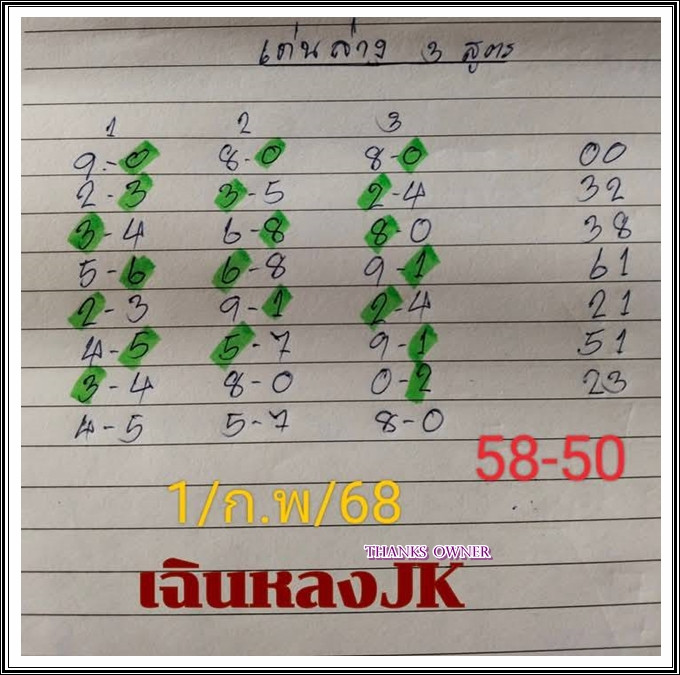 เด่นล่าง 3 สูตร
1 2 3
9.-0 8-0 8-0 00
2-3 3-5 2-4 32
3-4 6-8 8-0 38
5-6 6-8 9-1 61
2-3 9-1 2-4 21
4-5 5-7 9-1 51
3-4 8-0 0-2 23
4-5 5-7 8-0
58-50
1/ก.พ/68
THANKS OWNER
เฉินหลงJK